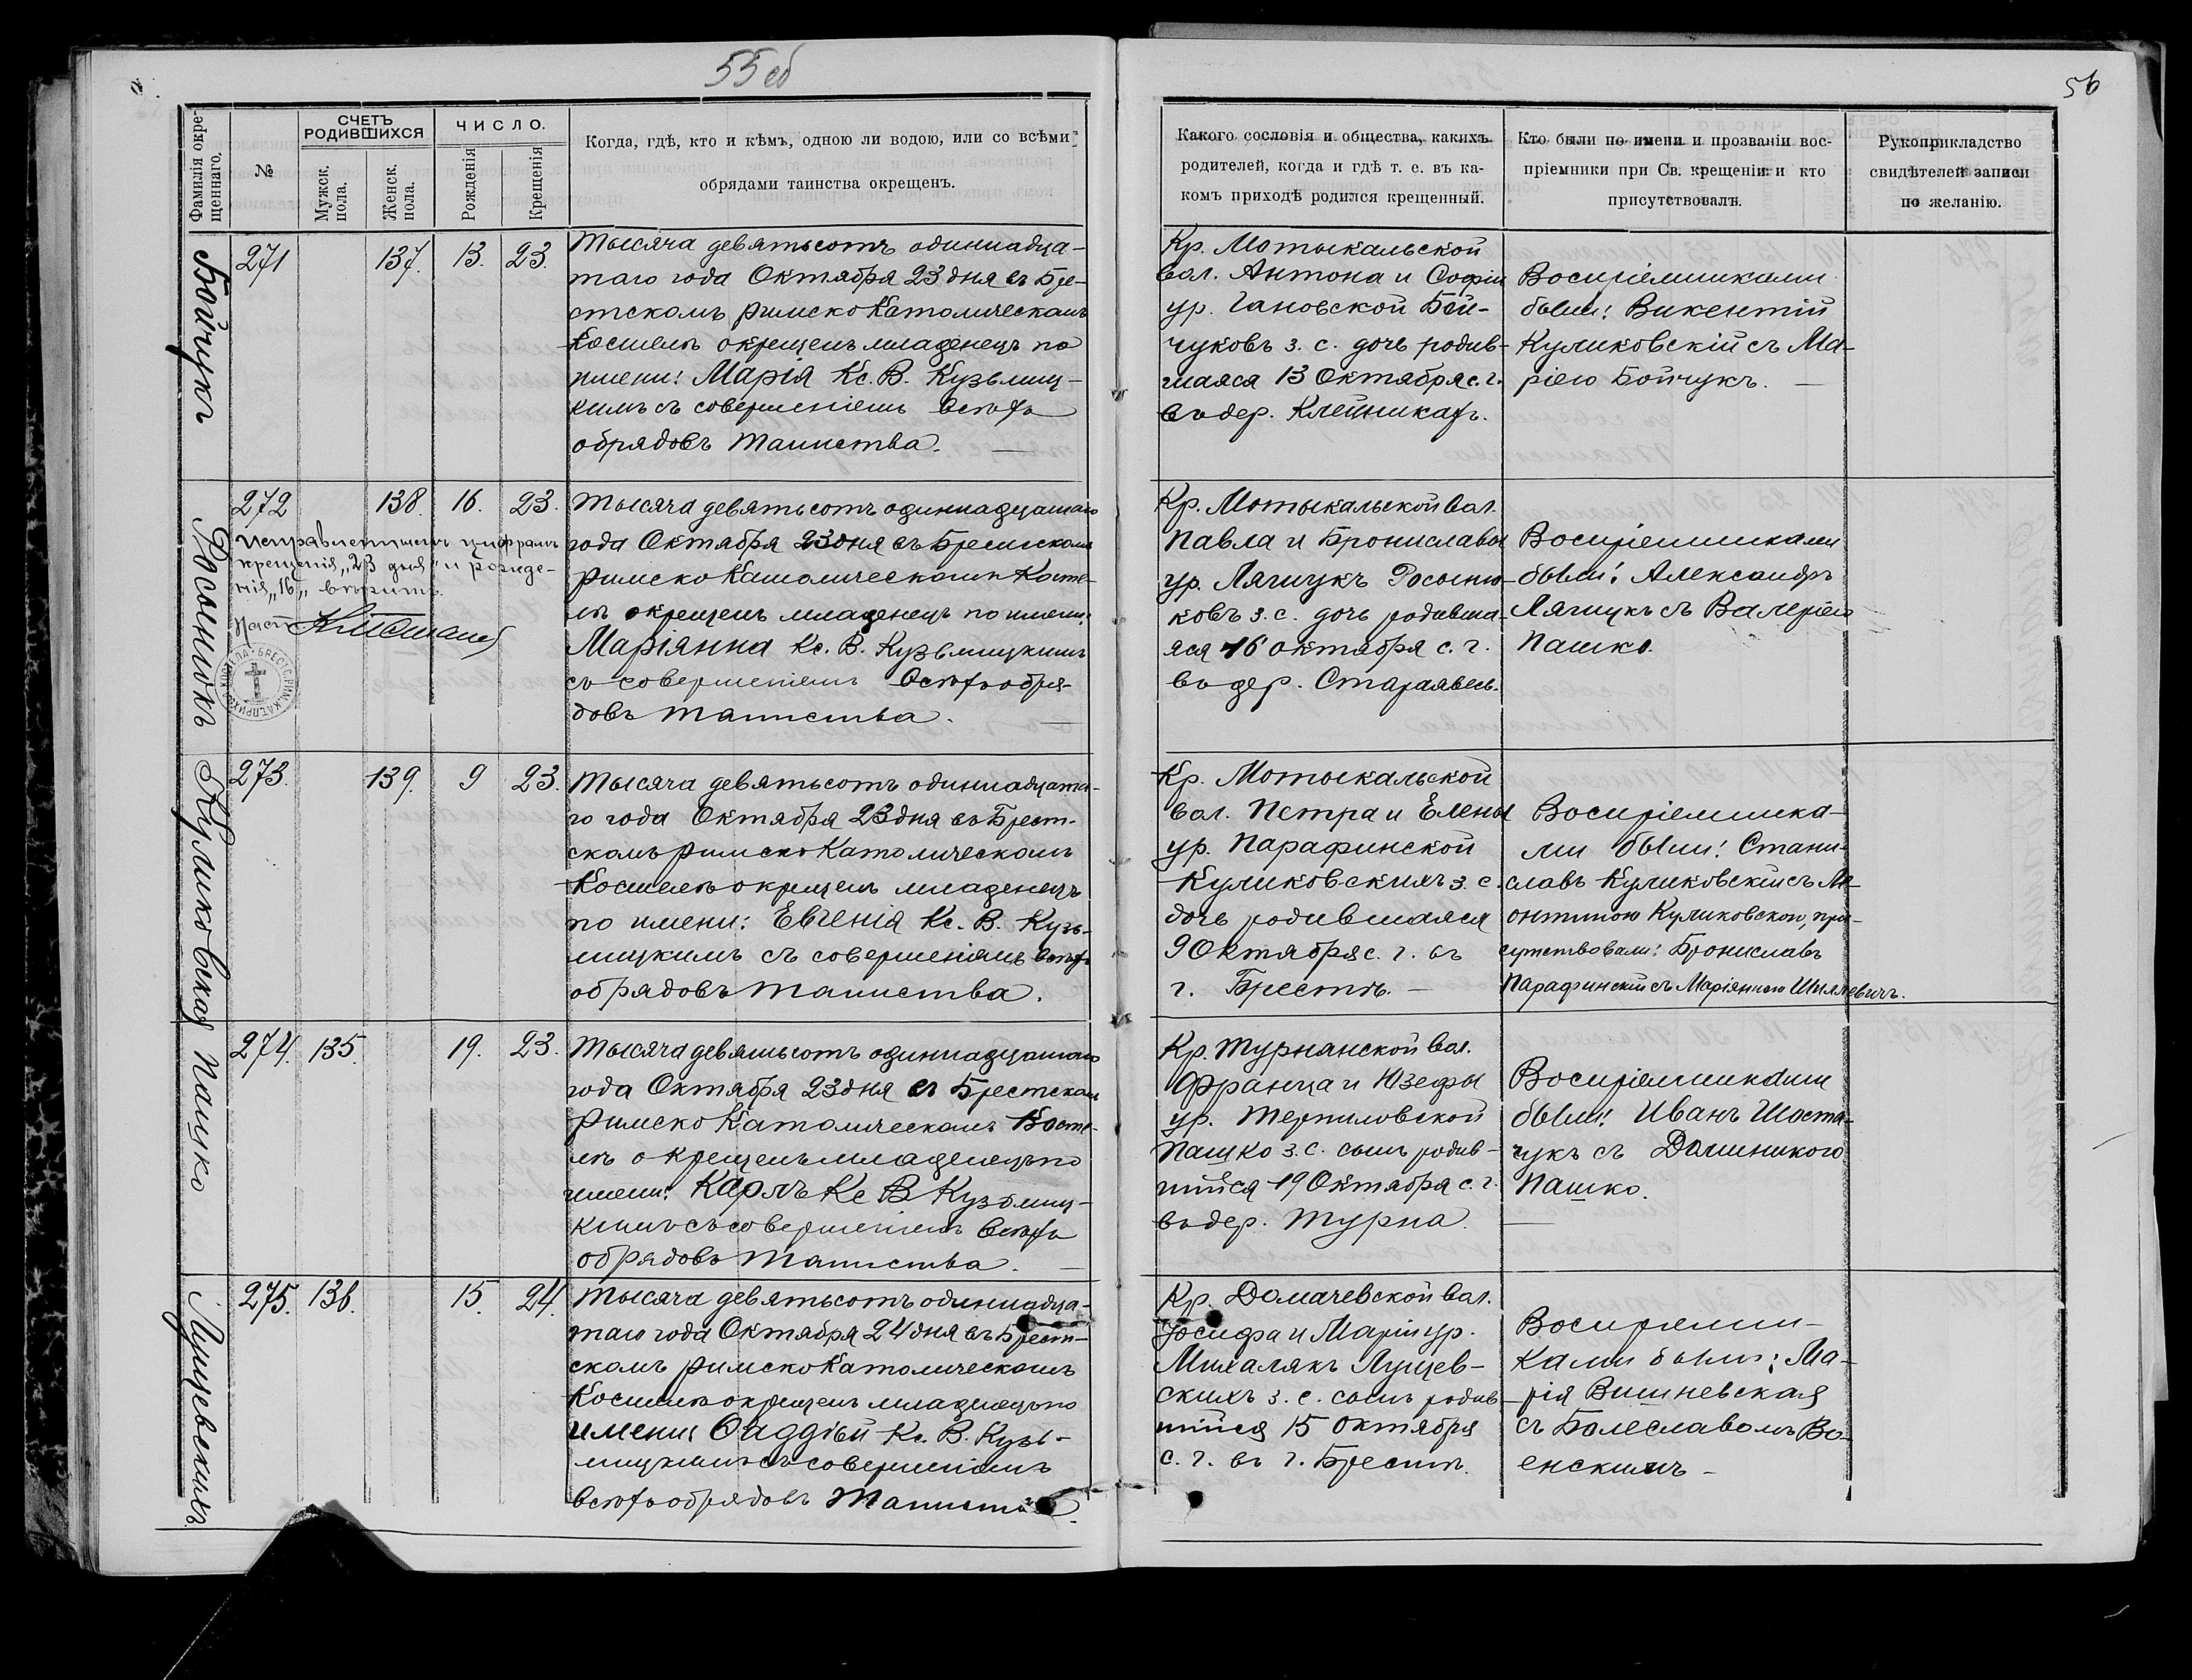 55 об
56
Фамилія окре-
щеннаго.
№
СЧЕТЪ
РОДИВШИХСЯ
Мужск.
пола.
Женск.
пола.
ЧИСЛО.
Рожденія
Крещенія
Когда, гдѣ, кто и кѣмъ, одною ли водою, или со всѣми
обрядами таинства окрещенъ.
Какого сословія и общества, какихъ
родителей, когда и гдѣ т. е. въ ка-
комъ приходѣ родился крещенный.
Кто были по имени и прозваніи вос-
пріемники при Св. крещеніи и кто
присутствовалъ.
Рукоприкладство
свидѣтелей записи
по желанію.
Бойчукъ
271
137.
13.
23.
Тысяча девятьсотъ одиннадца-
таго года Октября 23 дня въ Бре-
стскомъ римско Католическомъ
Костелѣ окрещенъ младенецъ по
имени: Марія Кс. В. Кузьмиц-
кимъ съ совершеніемъ всѣхъ
обрядовъ таинства.
Кр. Мотыкальской
вол. Антона и Софіи
ур. Гановской Бой-
чуковъ з. с. дочь родив-
шаяся 13 Октября с. г.
въ дер. Клейникахъ.
Воспріемниками
были: Викентій
Куликовскій съ Ма-
ріею Бойчукъ.
Росынюкъ
272
138.
16.
23.
Исправленнымъ цифрамъ
крещенія „23 дня" и рожде-
нія „16„ вѣрить.
Наст
КОСТЕЛА · БРЕСТ. РИМ. КАТ. ПРИХ.
Тысяча девятьсотъ одиннадцатаго
года Октября 23 дня въ Брестскомъ
римско Католическомъ Косте-
лѣ окрещенъ младенецъ по имени:
Маріянна Кс. В. Кузьмицкимъ
съ совершеніемъ всѣхъ обря-
довъ таинства.
Кр. Мотыкальской вол.
Павла и Брониславы
ур. Лягицукъ Росыню-
ковъ з. с. дочь родивша-
яся 16 октября с. г.
въ дер. Стараявесь.
Воспріемниками
были: Александръ
Лягицукъ съ Валеріею
Пашко.
Куликовская
273.
139.
9
23.
Тысяча девятьсотъ одиннадцата-
го года Октября 23 дня въ Брест-
скомъ римско Католическомъ
Костелѣ окрещенъ младенецъ
по имени: Евгенія Кс. В. Кузь-
мицкимъ съ совершеніемъ всѣхъ
обрядовъ таинства.
Кр. Мотыкальской
вол. Петра и Елены
ур. Парафинской
Куликовскихъ з. с.
дочь родившаяся
9 Октября с. г. въ
г. Брестѣ.
Воспріемника-
ми были: Стани-
славъ Куликовскій съ Ле-
онтиною Куликовскою, при-
сутствовали: Брониславъ
Парафинскій съ Маріянною Шилевичъ.
Пашко
274.
135.
19.
23.
Тысяча девятьсотъ одиннадцатаго
года Октября 23 дня въ Брестскомъ
римско Католическомъ Косте-
лѣ окрещенъ младенецъ по
имени: Карлъ Кс В Кузьмиц-
кимъ съ совершеніемъ всѣхъ
обрядовъ таинства.
Кр. Турнянской вол.
Франца и Юзефы
ур. Терпиловской
Пашко з. с. сынъ родив-
шійся 19 Октября с. г.
въ дер. Турна.
Воспріемниками
были: Иванъ Шоста-
чукъ съ
Пашко.
Лущевскихъ
275.
136.
15.
24.
Тысяча девятьсотъ одиннадца-
таго года Октября 24 дня въ Брест-
скомъ римско Католическомъ
Костелѣ окрещенъ младенецъ по
имени: Фаддѣй Кс. В. Кузь-
мицкимъ съ совершеніемъ
всѣхъ обрядовъ таинства.
Кр. Домачевской вол.
Іосифа и Маріи ур.
Михалякъ Лущев-
скихъ з. с. сынъ родив-
шійся 15 октября
с. г. въ г. Брестѣ.
Воспріемни-
ками были: Ма-
рія Вишневская
съ Болеславомъ Во-
енскимъ